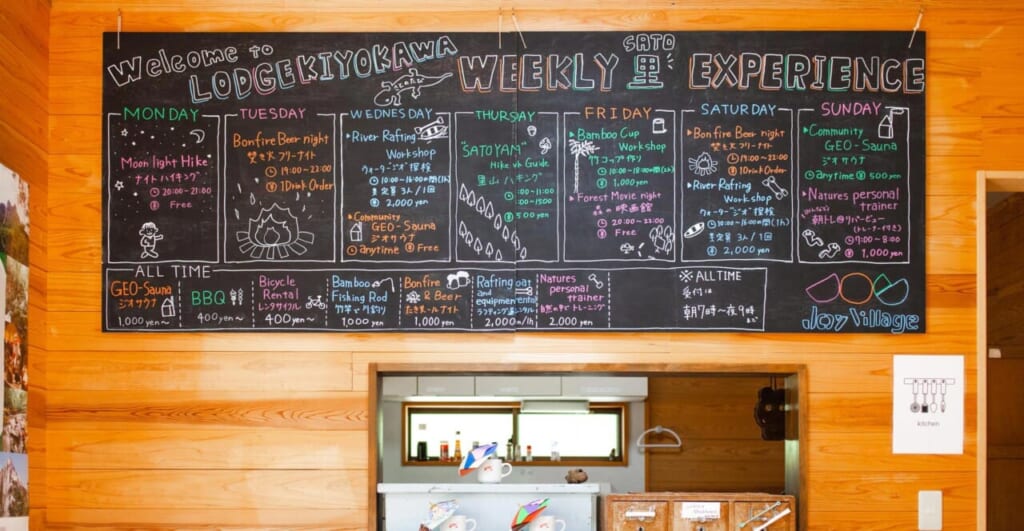 Welcome to
LODGE KIYOKAWA
WEEKLY
SATO
里
EXPERIENCE
MONDAY
Moon light Hike
ナイトハイキング
20:00-21:00
Free
TUESDAY
Bonfire Beer night
焚き火フリーナイト
19:00~22:00
1Drink Order
WEDNESDAY
River Rafting
Workshop
ウォータージオ探検
10:00~16:00
3人/1回
2,000 yen
Community
GEO-Sauna
ジオサウナ
anytime Free
THURSDAY
"SATOYAM"
Hike with Guide
里山ハイキング
:00-11:00
500 yen
FRIDAY
Bamboo Cup
Workshop
竹コップ作り
10:00~16:00
1,000 yen
Forest Movie night
森の映画館
20:00~22:00
Free
SATURDAY
Bonfire Beer night
焚き火フリーナイト
19:00~22:00
1Drink Order
River Rafting
Workshop
ウォータージオ探検
10:00~16:00
3人/1回
2,000 yen
SUNDAY
Community
GEO-Sauna
ジオサウナ
anytime 500 yen
Natures personal
trainer
7:00~8:00
1,000 yen
ALL TIME
GEO-Sauna
ジオサウナ
1,000 yen~
BBQ
400 yen~
Bicycle
Rental
レンタサイクル
400 yen~
Bamboo
Fishing Rod
竹竿で釣り
1,000 yen
Bonfire
& Beer
たき火ールナイト
1,000 yen
Rafting boat
and
equipment rental
2,000
Natures
personal
trainer
自然の中でトレーニング
2,000 yen
※ALL TIME
受付は
朝7時~夜9時
まで
Joy Village
kitchen